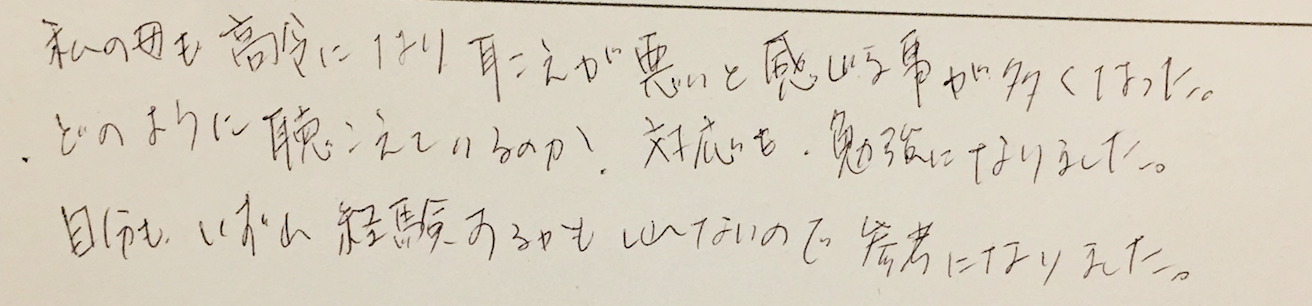 私の母も高令になり耳こえが悪いと感じる事が多くなった。
どのように聴こえているのか、対応も、勉強になりました。
自分も、いずれ経験するかもしれないので参考になりました。